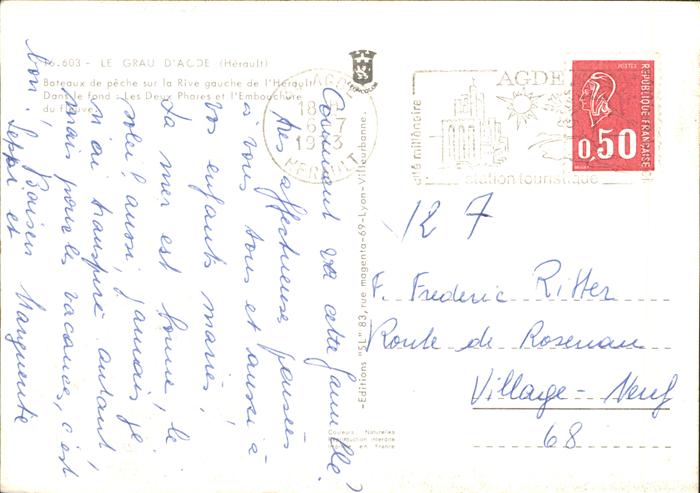 16.603 - LE GRAU D'AGDE (Hérault)
Bateaux de pêche sur la Rive gauche de l'Hérault
Dans le fond : Les Deux Phares et l'Embouchure
du fleuve
Comment va cette famille?
Mes affectueuses pensées
à vous tous et aussi à
vos enfants mariés!
La mer est bonne, le
soleil aussi, jamais je
n'ai transpiré autant!
mais pour les vacances, c'est
bon! Baisers Marguerite
Seppi et
-Editions "SL" 83, rue magenta-69-Lyon-Villeurbanne.
Couleurs Naturelles
Reproduction interdite
Imprimé en France
AGDE
18H
6-7
1973
HERAULT
AGDE
cité millénaire
station touristique
POSTES
REPUBLIQUE FRANÇAISE
0,50
127
F. Frederic Ritter
Route de Rosenau
Village-Neuf
68